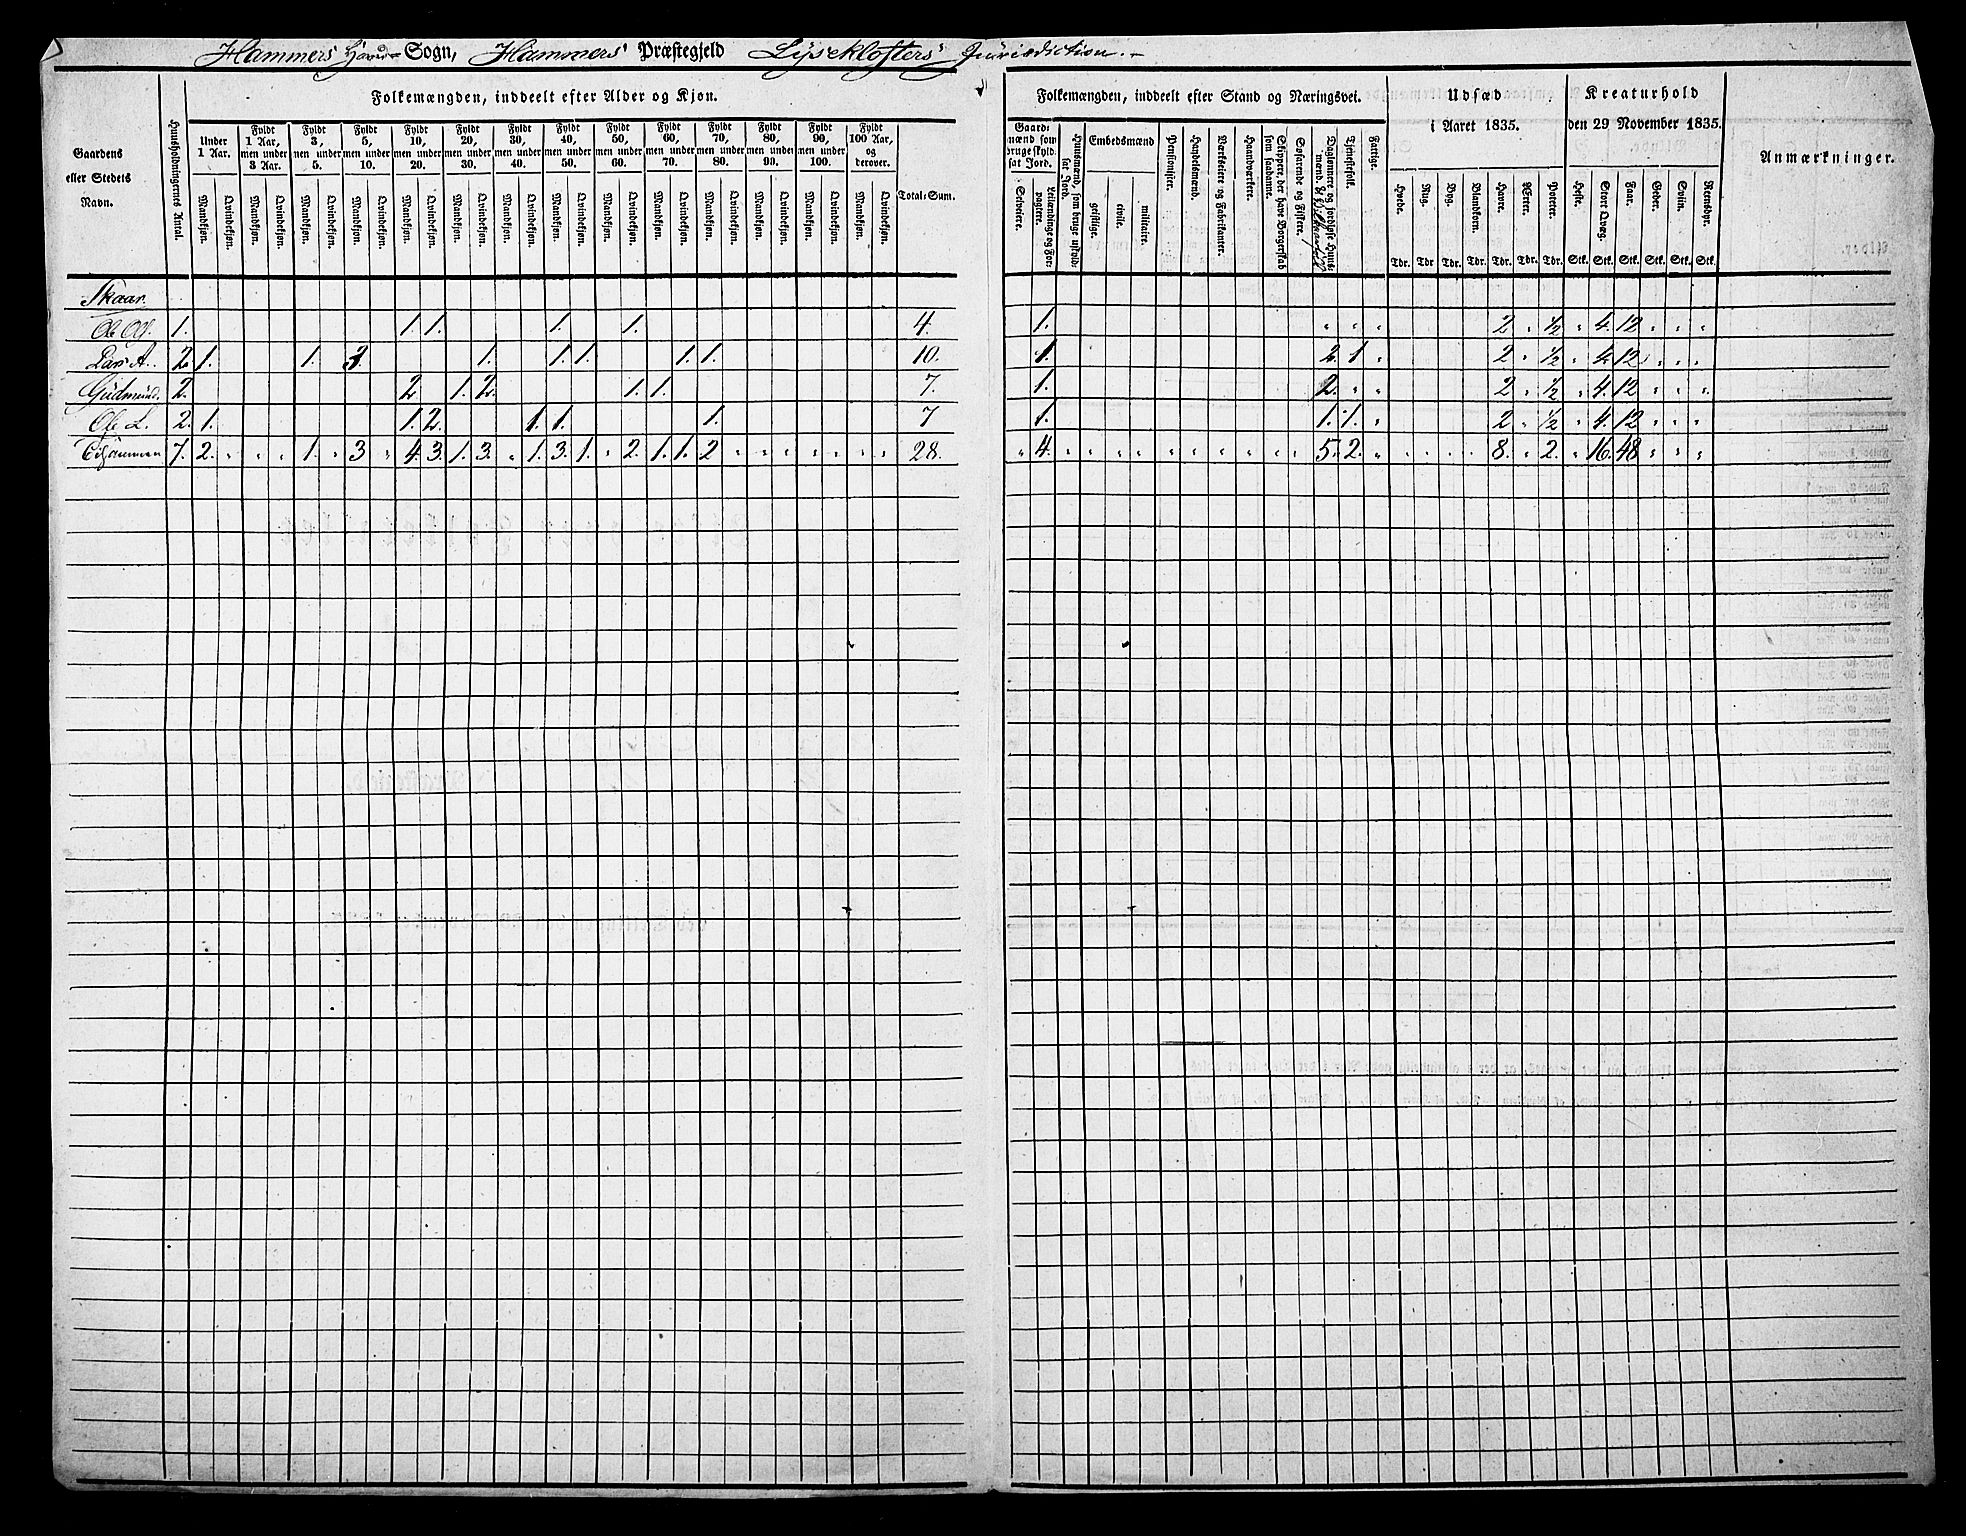 Hammers Hoved-Sogn, Hammers' Præstegjeld Lyseklosters' Jurisdiction.
Folkemængden, inddeelt efter Alder og Kjøn. Folkemængden, inddeelt efter Stand og Næringsvei. Udsæd i Aaret 1835. Kreaturhold den 29 November 1835. Anmærkninger.
Gaardens eller Stedets Navn.
Huusholdningernes Antal.
Under 1 Aar. Fyldt 1 Aar, men under 3 Aar. Fyldt 3, men under 5. Fyldt 5, men under 10. Fyldt 10, men under 20. Fyldt 20, men under 30. Fyldt 30, men under 40. Fyldt 40, men under 50. Fyldt 50, men under 60. Fyldt 60, men under 70. Fyldt 70, men under 80. Fyldt 80, men under 90. Fyldt 90, men under 100. Fyldt 100 Aar, og derover. Total-Sum.
Mandkjøn. Qvindekjøn. Mandkjøn. Qvindekjøn. Mandkjøn. Qvindekjøn. Mandkjøn. Qvindekjøn. Mandkjøn. Qvindekjøn. Mandkjøn. Qvindekjøn. Mandkjøn. Qvindekjøn. Mandkjøn. Qvindekjøn. Mandkjøn. Qvindekjøn. Mandkjøn. Qvindekjøn. Mandkjøn. Qvindekjøn. Mandkjøn. Qvindekjøn. Mandkjøn. Qvindekjøn. Mandkjøn. Qvindekjøn.
Gaardmænd som bruge skyldsat Jord. Selveiere. Leilændinge og Forpagtere.
Huusmænd, som bruge uskyldsat Jord.
Embedsmænd geistlige. civile. militaire.
Pensionister. Handelsmænd. Værkseiere og Fabrikanter. Haandværkere. Skippere, der have Borgerskab som saadanne. Søfarende og Fiskere. Daglønnere og jordløse Huusmænd. Tjenestefolk. Fattige.
Hvede. Rug. Byg. Blandkorn. Havre. Ærter. Poteter. Heste. Stort Qvæg. Faar. Geder. Sviin. Rensdyr.
Tdr. Tdr Tdr. Tdr. Tdr. Tdr. Tdr. Stk. Stk. Stk. Stk. Stk. Stk.
Skaar.
Ole 1. 1. 1. 1. 1. 4. 1. " " " 2 " ½ " 4. 12 " " "
Lars A. 2. 1. 1. 3. 1. 1. 1. 1. 1. 10. 1. 2. 1 " 2 " ½ " 4. 12 " " "
Gudmund. 2. 2. 1. 2. 1. 1. 7. 1. 2. " " 2 " ½ " 4. 12 " " "
Ole L. 2. 1. 1. 2. 1. 1. 1. 7 1. 1. 1. " 2 " ½ " 4. 12 " " "
7. 2. " " " 1. " 3 " 4. 3. 1. 3. " 1. 3. 1. " 2. 1. 1. 2 " " " " " " " 28. " 4. " " " " " " " " " " 5. 2. " " " " " 8. " 2. " 16. 48 " " "